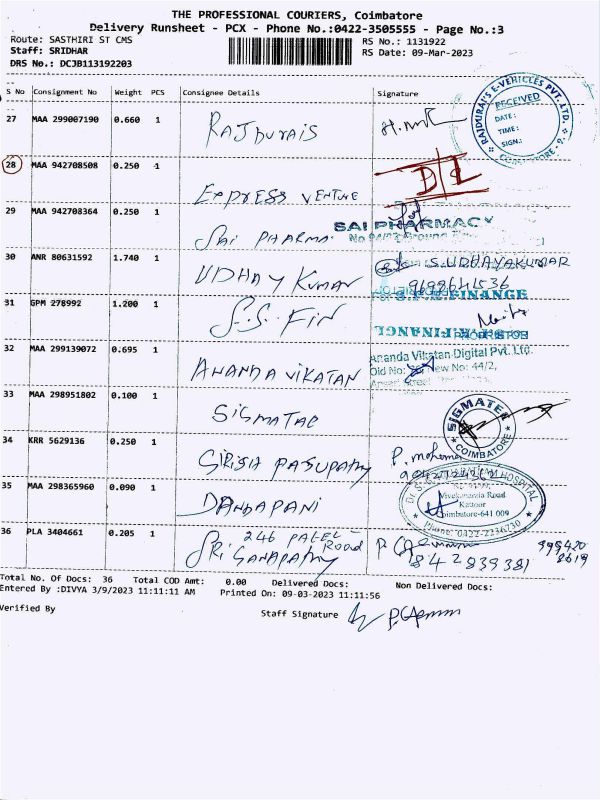 THE PROFESSIONAL COURIERS, Coimbatore
Delivery Runsheet - PCX - Phone No.:0422-3505555 - Page No.:3
Route: SASTHIRI ST CMS
RS No.: 1131922
Staff: SRIDHAR
RS Date: 09-Mar-2023
DRS No.: DCJB113192203
S No Consignment No Weight PCS Consignee Details Signature
27 MAA 299007190 0.660 1 RAJDURAIS
RAJDURAI'S E-VEHICLES PVT. LTD.
RECEIVED
DATE:
TIME:
SIGN.:
COIMBATORE - 9.
28 MAA 942708508 0.250 1 EXPRESS VENTURE D/L
29 MAA 942708364 0.250 1 SAI PHARMA
SAI PHARMACY
30 ANR 80631592 1.740 1 UDHAY KUMAR S.UDHAYAKUMAR
31 GPM 278992 1.200 1 S.S. FIN
FINANCE
PROPRIETOR
32 MAA 299139072 0.695 1 ANANDA VIKATAN
Ananda Vikatan Digital Pvt. Ltd.
Old No: New No: 44/2,
33 MAA 298951802 0.100 1 SIGMATAE
SIGMATE
COIMBATORE
34 KRR 5629136 0.250 1 GIRISH PASUPATHY P. mohana
35 MAA 298365960 0.090 1 DANDAPANI
HOSPITAL
Vivekananda Road
Kattoor
Coimbatore-641 009
Phone: 0422-2236730
36 PLA 3404661 0.205 1 246 PATEL Road
SRI GANAPATHY
842839381
Total No. Of Docs: 36 Total COD Amt: 0.00 Delivered Docs: Non Delivered Docs:
Entered By :DIVYA 3/9/2023 11:11:11 AM Printed On: 09-03-2023 11:11:56
Verified By Staff Signature